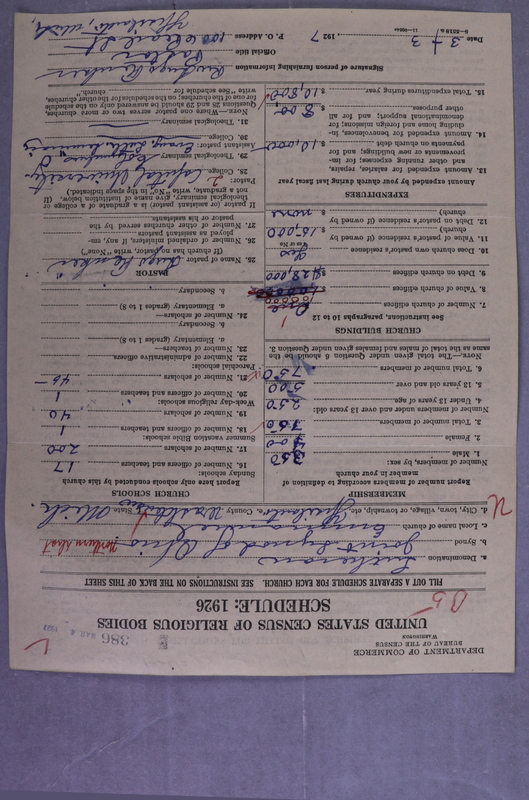 DEPARTMENT OF COMMERCE
BUREAU OF THE CENSUS
WASHINGTON
386
UNITED STATES CENSUS OF RELIGIOUS BODIES
SCHEDULE: 1926
FILL OUT A SEPARATE SCHEDULE FOR EACH CHURCH. SEE INSTRUCTIONS ON THE BACK OF THIS SHEET
a. Denomination Lutheran
b. Synod Joint Synod of Ohio Northern Dist
c. Local name of church Emmanuel
d. City, town, village, or township, etc. Ypsilanti, County State Mich.
MEMBERSHIP
Report number of members according to definition of member in your church
Number of members, by sex:
1. Male 350
2. Female 400
3. Total number of members 750
Number of members under and over 13 years old:
4. Under 13 years of age 250
5. 13 years old and over 500
6. Total number of members 750
NOTE.—The total given under Question 6 should be the same as the total of males and females given under Question 3.
CHURCH BUILDINGS
See instructions, paragraphs 10 to 12
7. Number of church edifices One 1
8. Value of church edifices $
9. Debt on church edifices $28,000
10. Does church own pastor's residence Yes
Yes or No
11. Value of pastor's residence (if owned by church) $15,000
12. Debt on pastor's residence (if owned by church) $none
EXPENDITURES
Amount expended by your church during last fiscal year
13. Amount expended for salaries, repairs, and other running expenses; for improvements or new buildings; and for payments on church debt $10,000
14. Amount expended for benevolences, including home and foreign missions; for denominational support; and for all other purposes $800
15. Total expenditures during year $10,800
CHURCH SCHOOLS
Report here only schools conducted by this church
Sunday schools:
16. Number of officers and teachers 17
17. Number of scholars 200
Summer vacation Bible schools:
18. Number of officers and teachers 1
19. Number of scholars 40
Week-day religious schools:
20. Number of officers and teachers 1
21. Number of scholars 45
Parochial schools:
22. Number of administrative officers
23. Number of teachers—
a. Elementary (grades 1 to 8)
b. Secondary
24. Number of scholars—
a. Elementary (grades 1 to 8)
b. Secondary
PASTOR
25. Name of pastor
(If church has no pastor, write "None")
26. Number of ordained ministers, if any, employed as assistant pastors
27. Number of other churches served by the pastor or his assistants
If pastor (or assistant pastor) is a graduate of a college or theological seminary, give name of institution below. (If not a graduate, write "No" in the space indicated.)
Pastor:
28. College Capital University
29. Theological seminary
Assistant pastor:
30. College
31. Theological seminary
NOTE.—Where one pastor serves two or more churches, Questions 28 and 29 should be answered only on the schedule for one of the churches; on the schedules for the other churches, write "See schedule for church."
Signature of person furnishing information
Official title Pastor
P. O. Address
Ypsilanti, Mich.
Date 3/3 1927